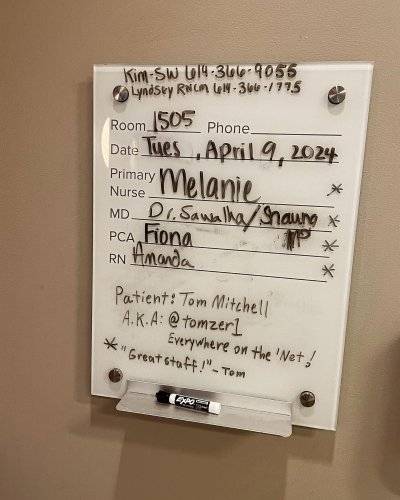 Kim-SW 614-366-9055
Lyndsey RNCM 614-366-1775
Room 1505 Phone
Date Tues, April 9, 2024
Primary Nurse Melanie *
MD Dr. Sawalha/Shauna NP *
PCA Fiona *
RN Amanda *
Patient: Tom Mitchell
A.K.A: @tomzer1
Everywhere on the 'Net!
* "Great staff!" - Tom
EXPO